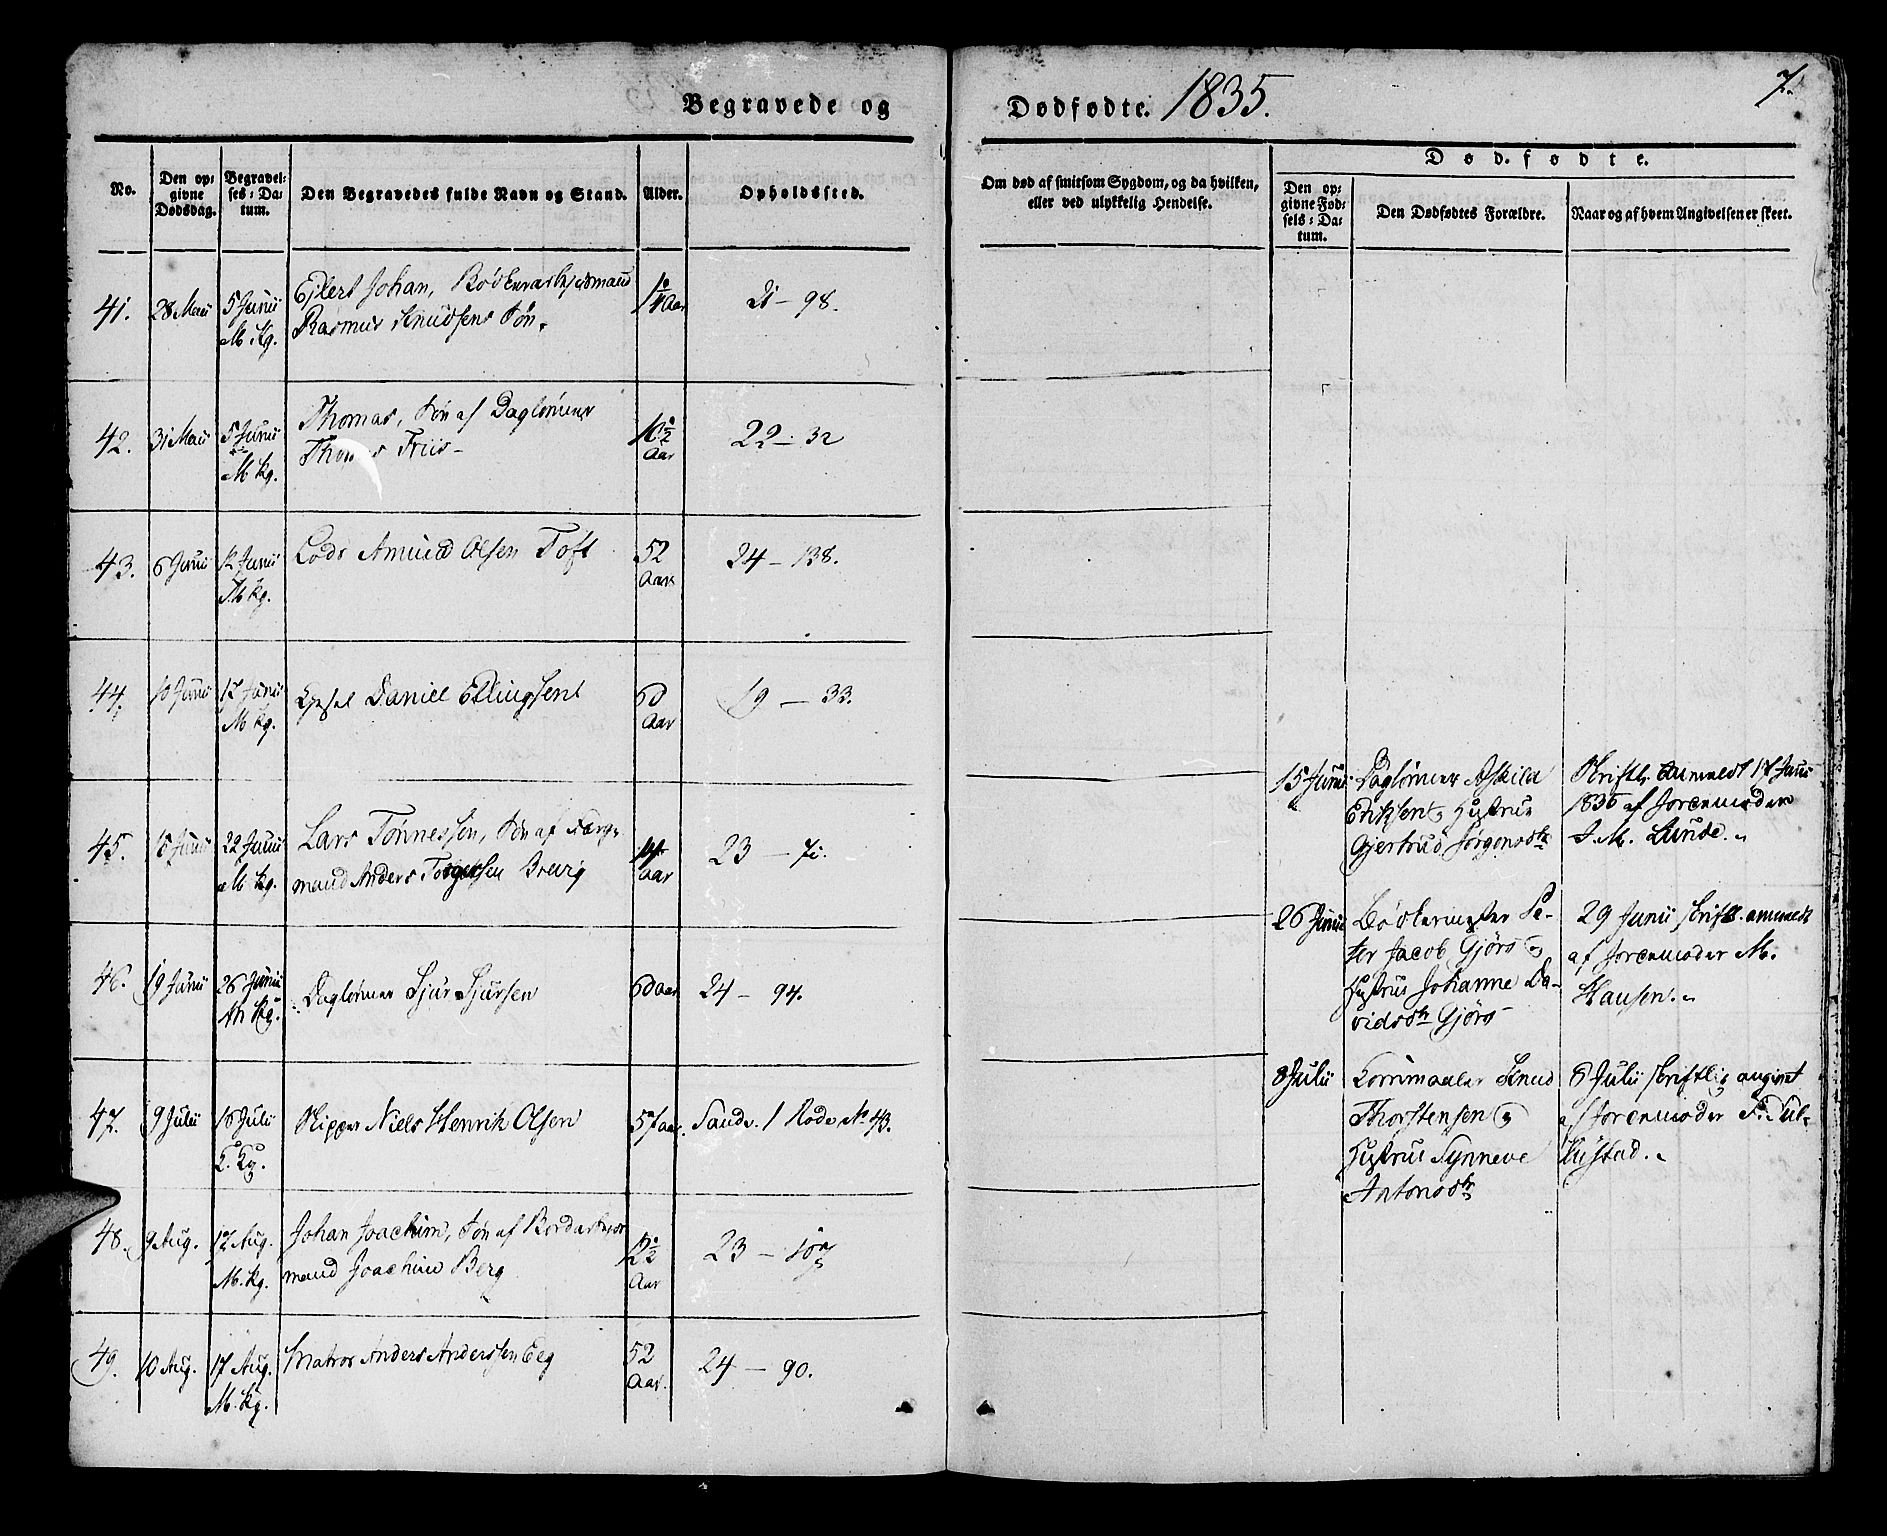 Begravede og Dødfødte. 1835.
7.
No.
Den op=
givne
Dødsdag.
Begravel=
ses=Da=
tum.
Den Begravedes fulde Navn og Stand.
Alder.
Opholdssted.
Om død af smitsom Sygdom, og da hvilken,
eller ved ulykkelig Hendelse.
Dødfødte.
Den op=
givne Fød=
sels=Da=
tum.
Den Dødfødtes Forældre.
Naar og af hvem Angivelsen er skeet.
41. 28 Maii 5 Junii
M Kg.
Ejlert Johan,
Rasmus Knudsens Søn.
Aar
21 – 98.
42. 31 Maii 5 Junii
M Kg.
Thomas, Søn af Daglønner
Thomas Friis –
Aar
22 – 32
43. 6 Junii 12 Junii
M Kg.
Lods Amund Olsen Toft
52
Aar
24 – 138.
44. 10 Junii 17 Junii
M Kg.
Daniel Ellingsen
60
Aar
19 – 33.
45. 15 Junii 22 Junii
M Kg.
Lars Tønnessen, Søn af
mand Anders Torgersen
Aar
23 – 71.
46. 19 Junii 26 Junii
Kg.
Daglønner Sjur Sjursen
60 aar
24 – 94.
47. 9 Julii 16 Julii
K. Kg.
Skipper Niels Henrik Olsen
57 aar.
Sandv. 1 Rode No 43.
48. 9 Aug. 17 Aug.
M. Kg.
Johan Joachim, Søn af
mand Joachim Berg
2½
Aar
23 – 107
49. 10 Aug. 17 Aug.
M. Kg.
Matros Anders Anderssen Eeg
52
Aar.
24 – 90.
15 Junii
Daglønner Askild
Eriksen og Hustrue
Gjertrud Jørgensdtr
Skriftl. anmeldt 17 Junii
1835 af Jordemoder
S. M. Lunde.
26 Junii
Bødkermester Pe-
ter Jacob Gjørs og
Hustrue Johanne Da-
vidsdtr Gjørs
29 Junii skriftl. anmeldt
af Jordemoder M.
Hansen.
8 Julii
Kornmaaler Knud
Thorstensen og
Hustrue Synneve
Antonsdtr
8 Julii skriftlig angivet
af Jordemoder